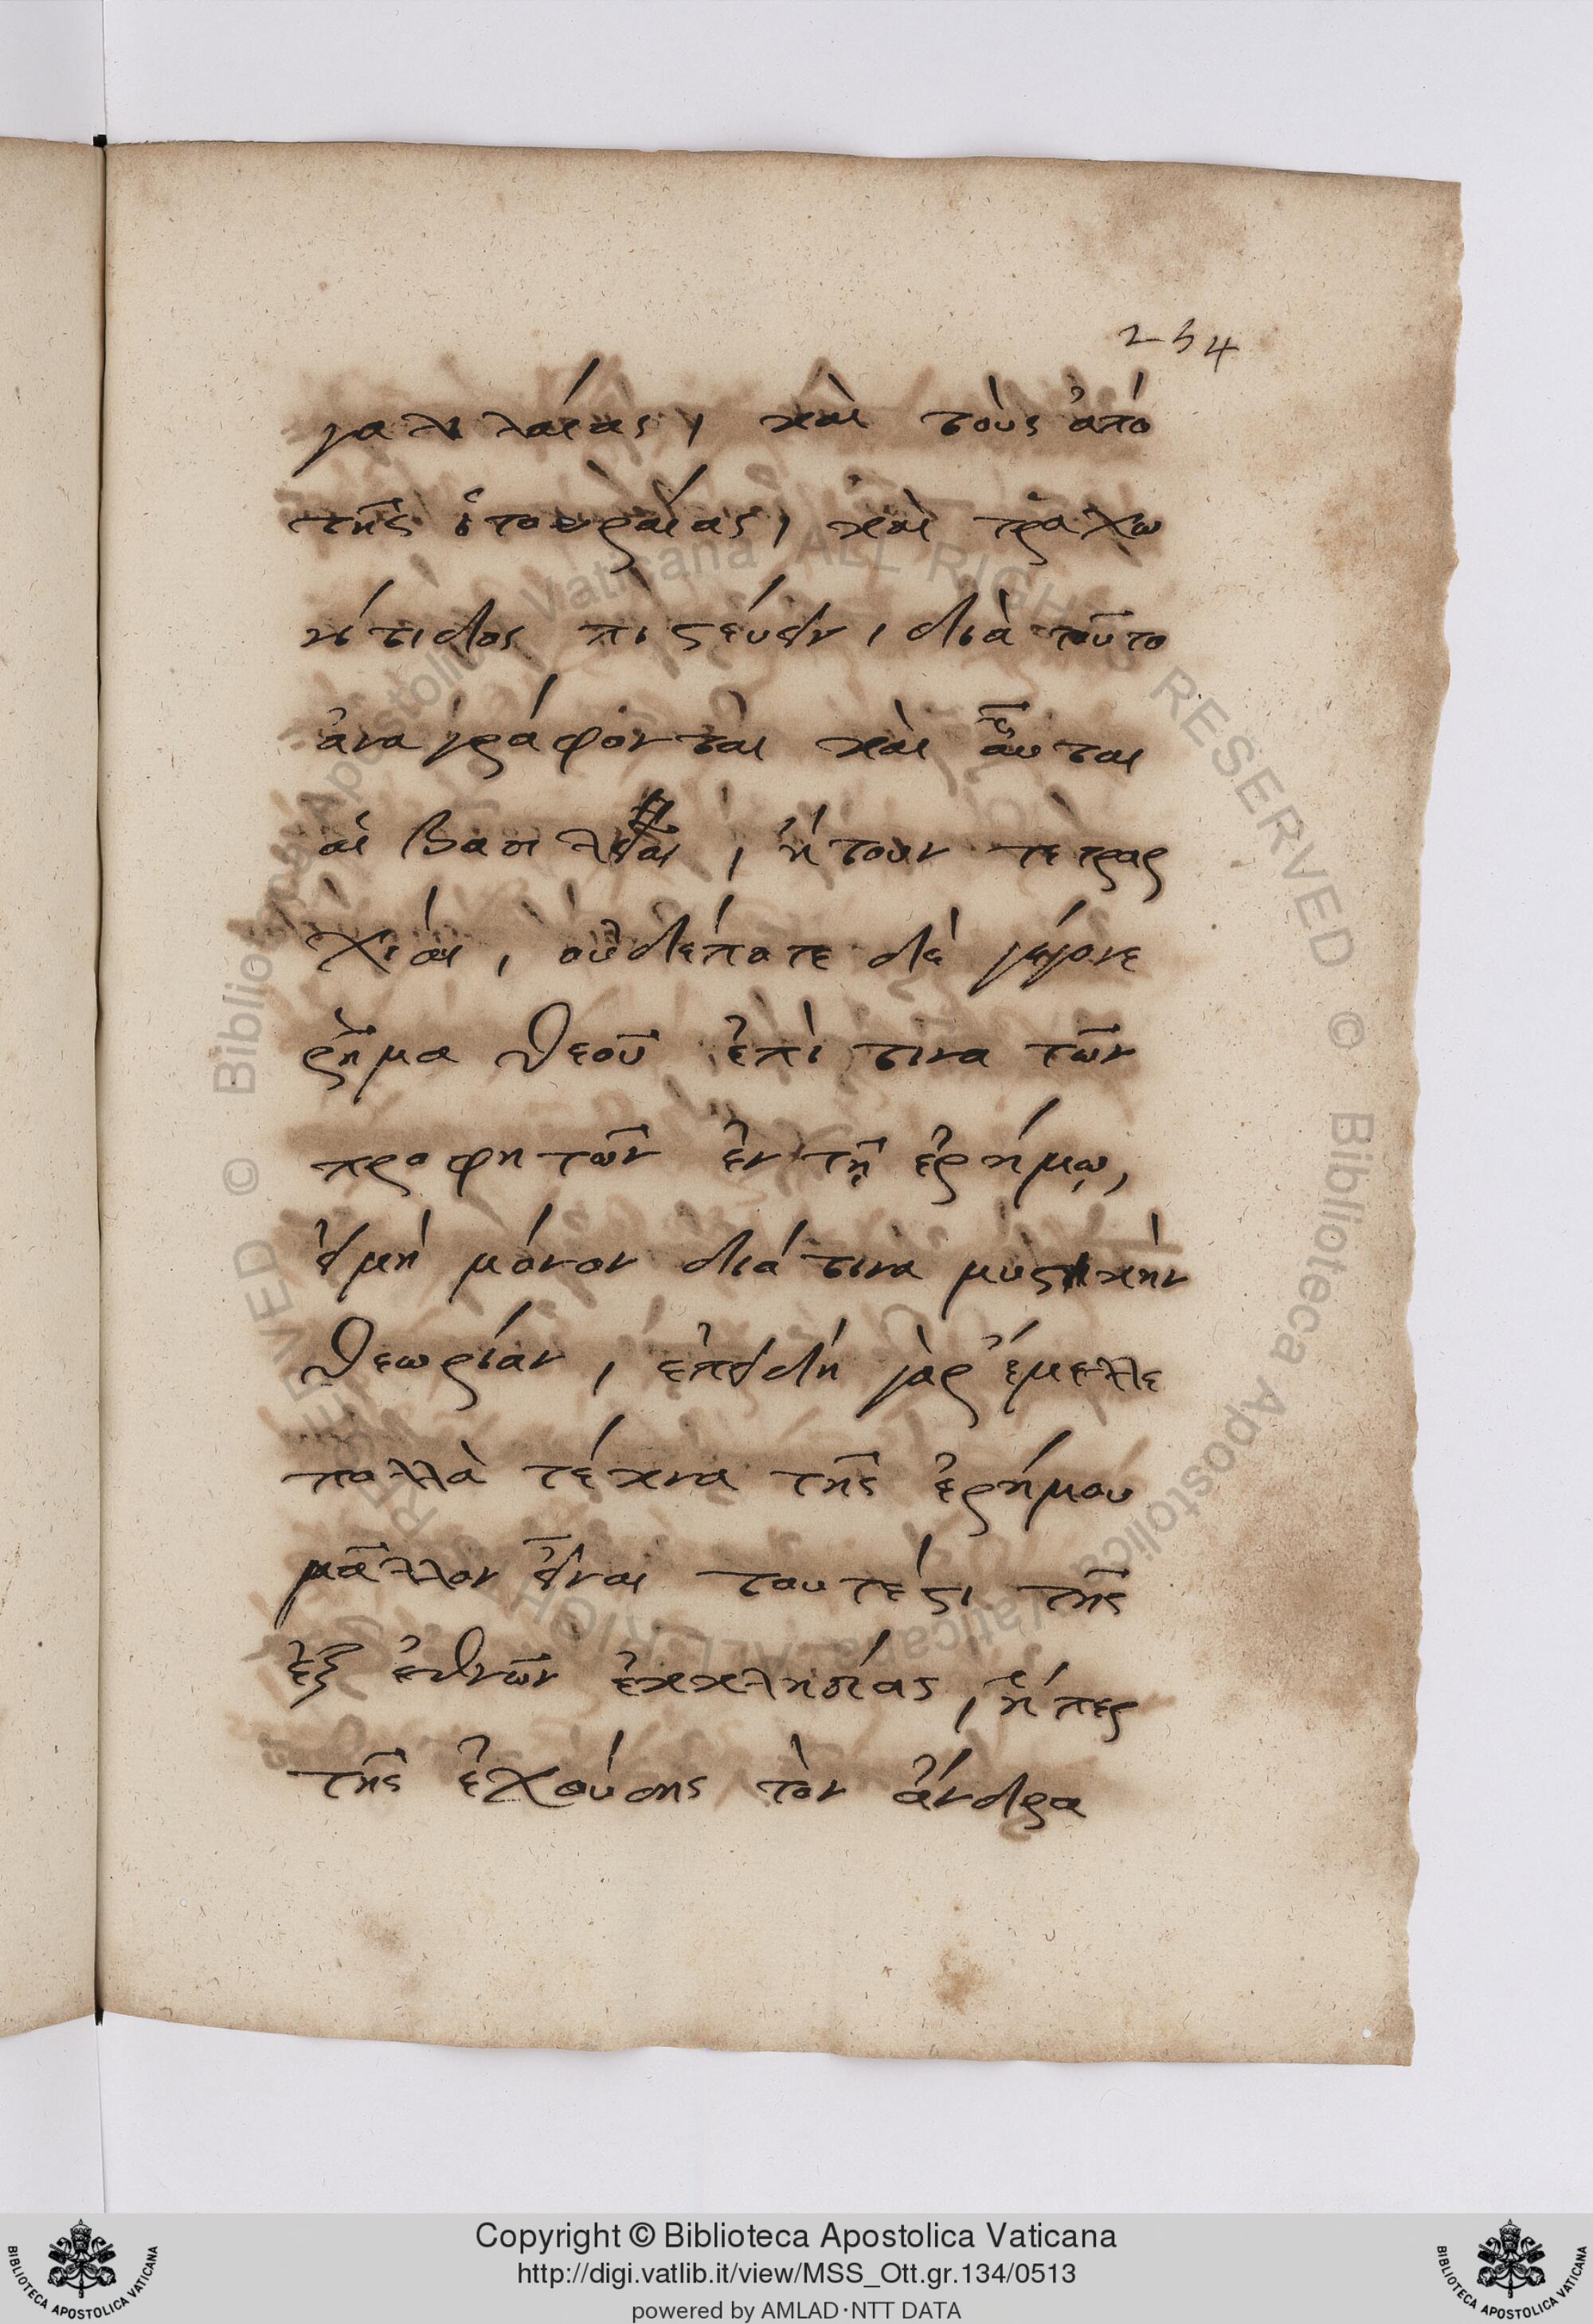 254
γαλιλαίας, καὶ τοὺς ἀπὸ
τῆς ἰτουραίας, καὶ τραχω
νίτιδος πιστεύειν, διὰ τοῦτο
ἀναγράφονται καὶ αὗται
αἱ βασιλεῖαι, ἤτουν τετραρ
χίαι, οὐδέποτε δὲ γέγονε
ῥῆμα θεοῦ ἐπί τινα τῶν
προφητῶν ἐν τῇ ἐρήμῳ,
εἰμὴ μόνον διά τινα μυστικὴν
θεωρίαν, ἐπειδὴ γὰρ ἔμελλε
πολλὰ τέκνα τῆς ἐρήμου
μᾶλλον εἶναι τουτέστι τῆς
ἐξ ἐθνῶν ἐκκλησίας, ἤπερ
τῆς ἐχούσης τὸν ἄνδρα
Copyright © Biblioteca Apostolica Vaticana
http://digi.vatlib.it/view/MSS_Ott.gr.134/0513
powered by AMLAD·NTT DATA
BIBLIOTECA APOSTOLICA VATICANA
BIBLIOTECA APOSTOLICA VATICANA